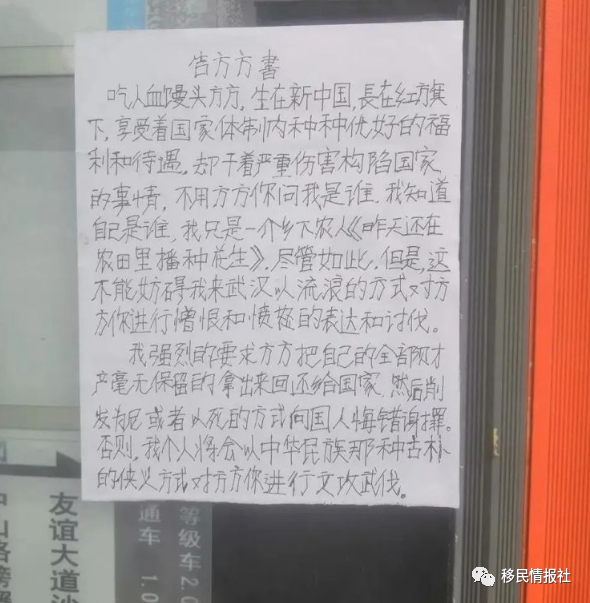 告方方書
吃人血馒头方方，生在新中国，長在红旗
下，享受着国家体制内种种优好的福
利和待遇，却干着严重伤害构陷国家
的事情，不用方方你问我是谁，我知道
自己是谁，我只是一个乡下农人《昨天还在
农田里播种花生》，尽管如此，但是，这
不能妨碍我来武汉以流浪的方式对方
方你进行憎恨和愤怒的表达和讨伐。
我强烈的要求方方把自己的全部财
产毫无保留的拿出来回还给国家，然后削
发为尼或者以死的方式向国人悔错谢罪。
否则，我个人将会以中华民族那种古朴
的侠义方式对方方你进行文攻武伐。
友谊大道
通车 1.0
等级车2.0
移民情报社